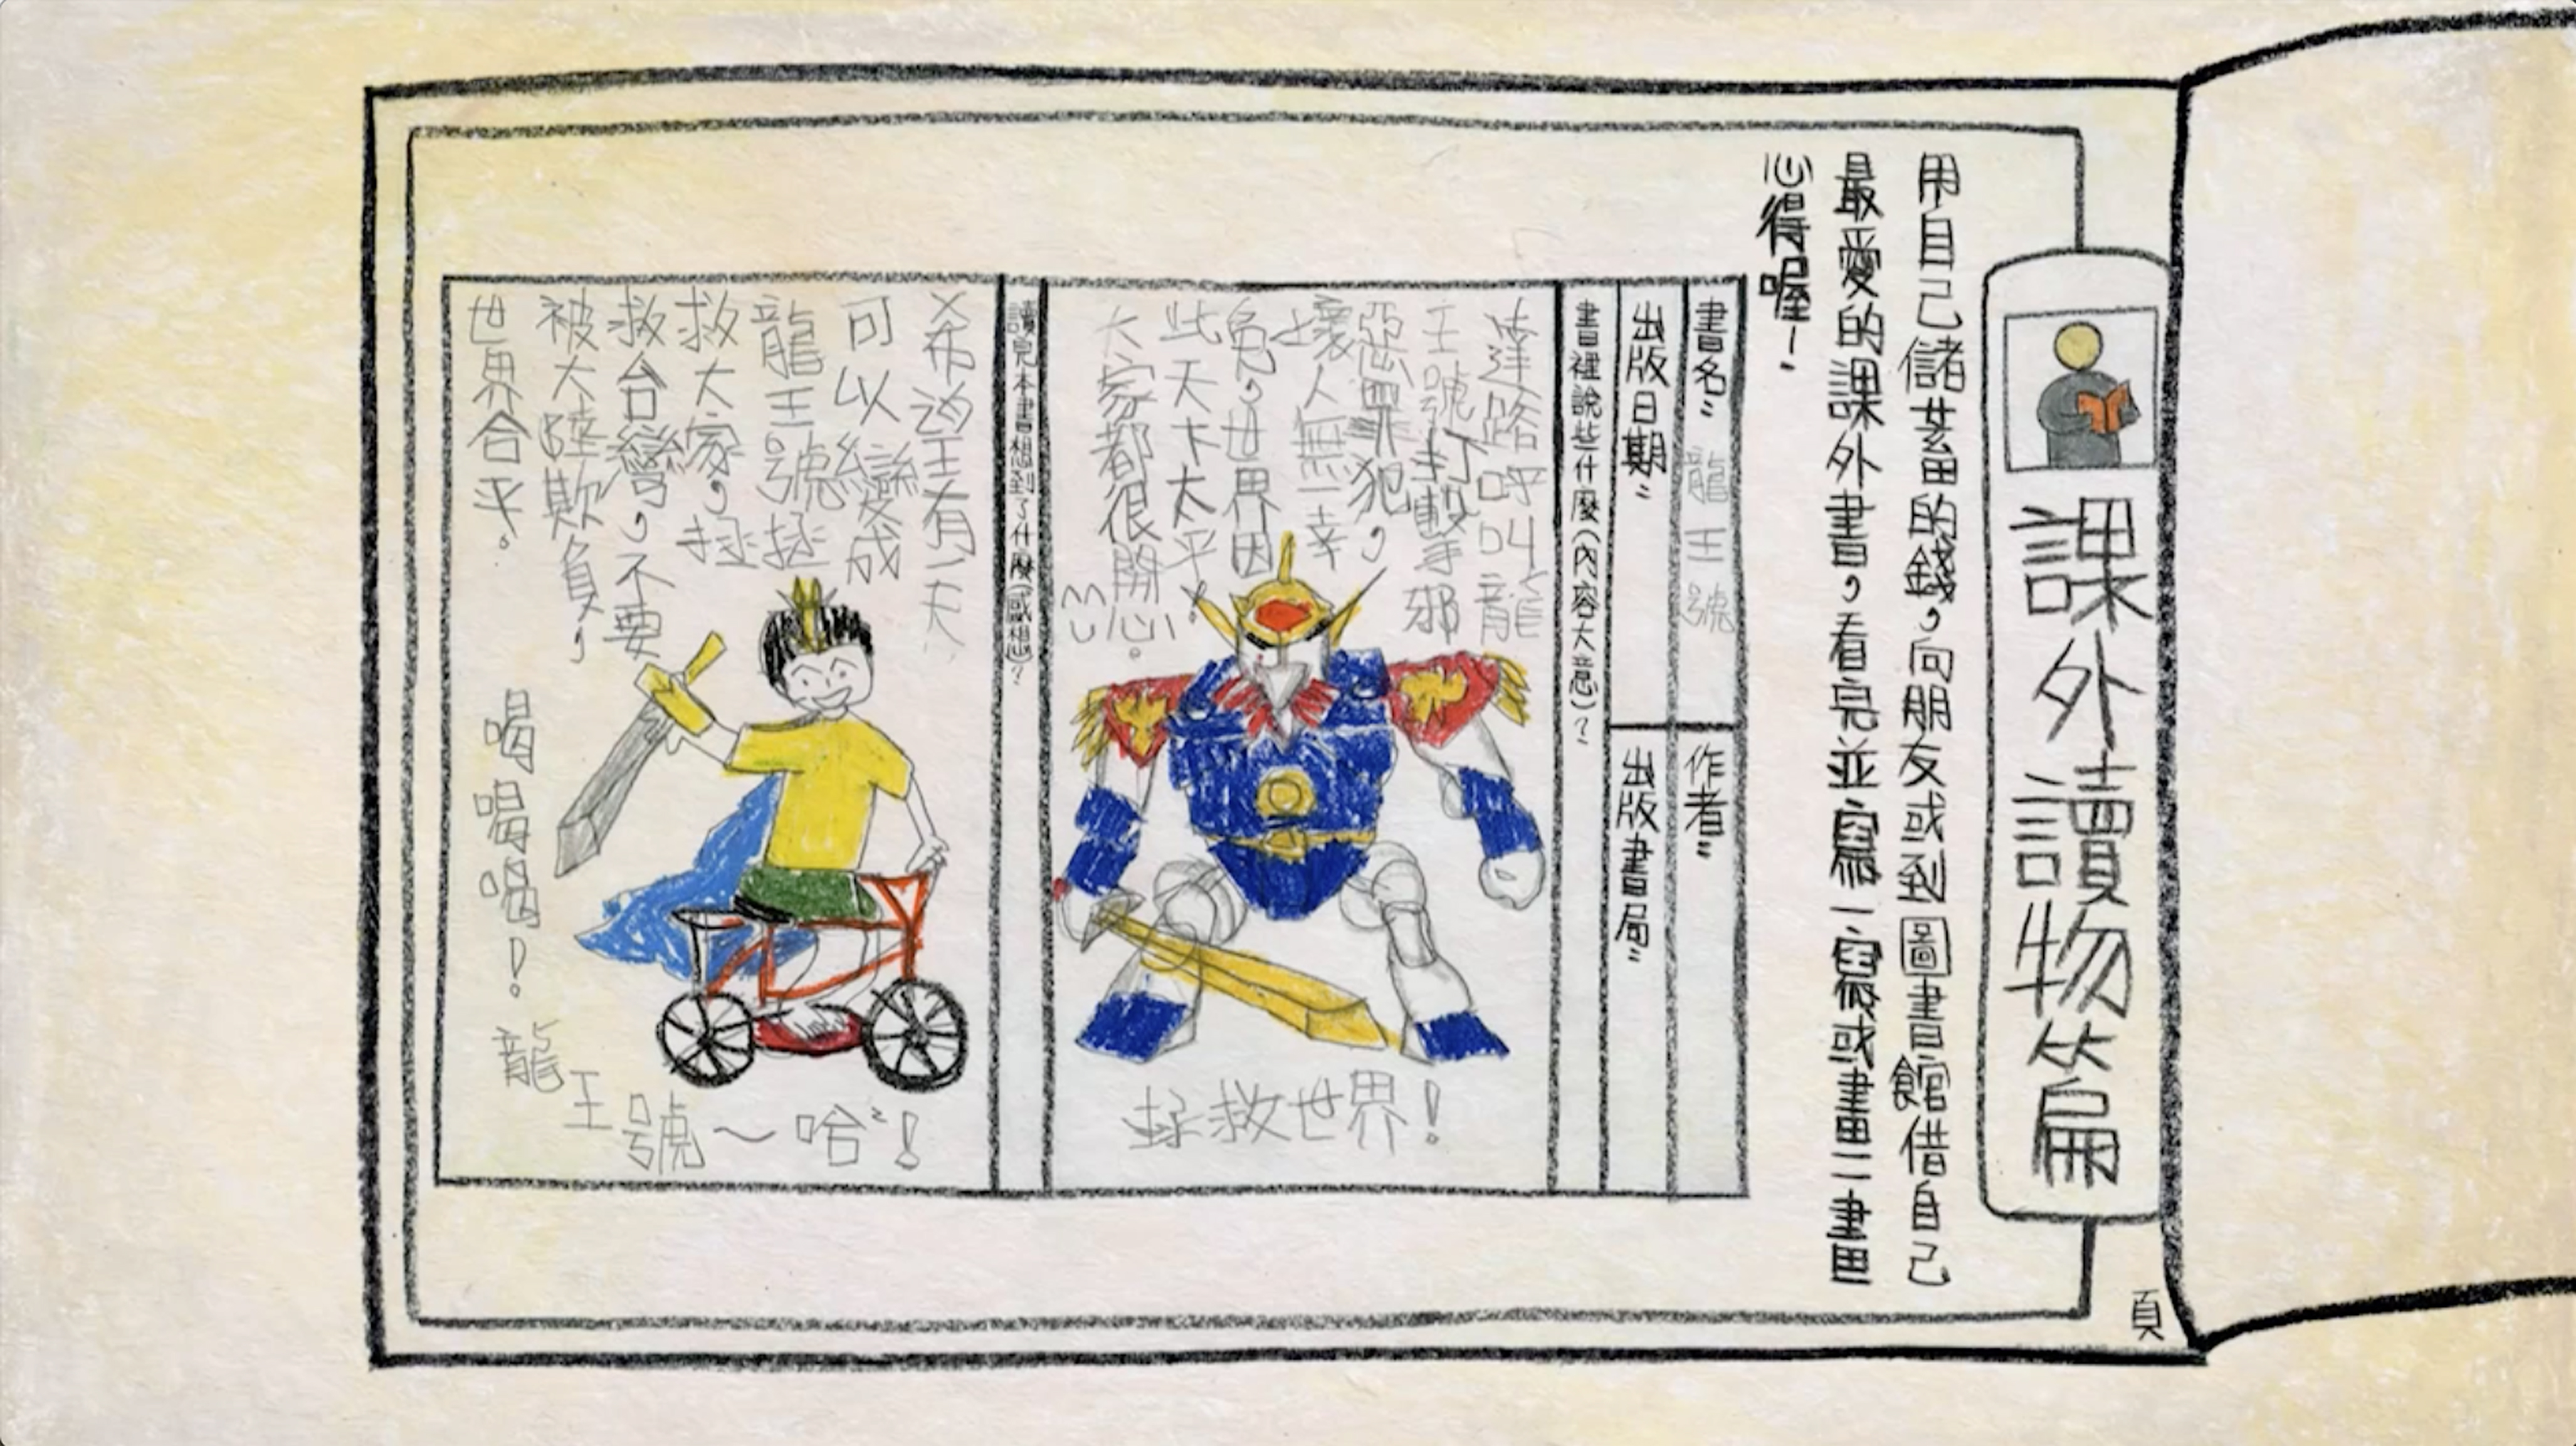 課外讀物篇
用自己儲蓄的錢，向朋友或到圖書館借自己
最愛的課外書，看完並寫一寫或畫一畫
心得喔！
書名：龍王號
作者：
出版日期：
出版書局：
書裡說些什麼（內容大意）？
達路呼叫龍
王號打擊邪
惡罪犯，
壞人無一幸
免，世界因
此天下太平！
大家都很開心。
拯救世界！
讀完本書想到了什麼（感想）？
希望有一天
可以變成
龍王號拯
救大家，拯
救台灣，不要
被大陸欺負，
世界合平。
喝喝喝！
龍王號～哈！
頁